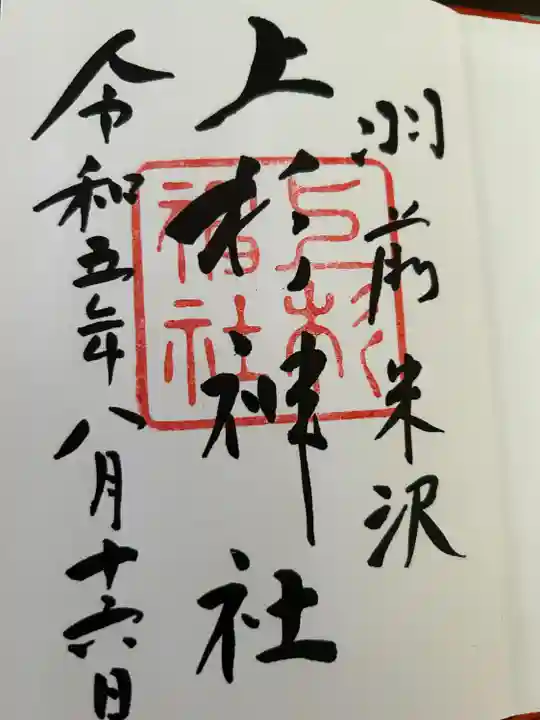 羽前米沢
上杉神社
令和五年八月十六日
上杉
福社